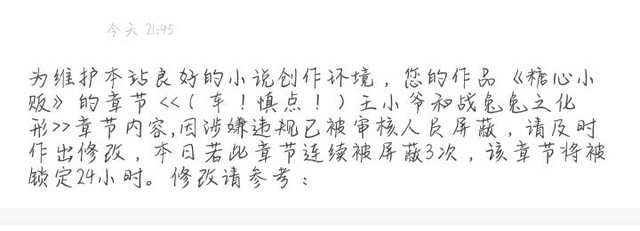 今天 21:45
为维护本站良好的小说创作环境，您的作品《糖心小
贩》的章节<<（车！慎点！）王小爷和战兔兔之化
形>>章节内容,因涉嫌违规已被审核人员屏蔽，请及时
作出修改，本日若此章节连续被屏蔽3次，该章节将被
锁定24小时。修改请参考：